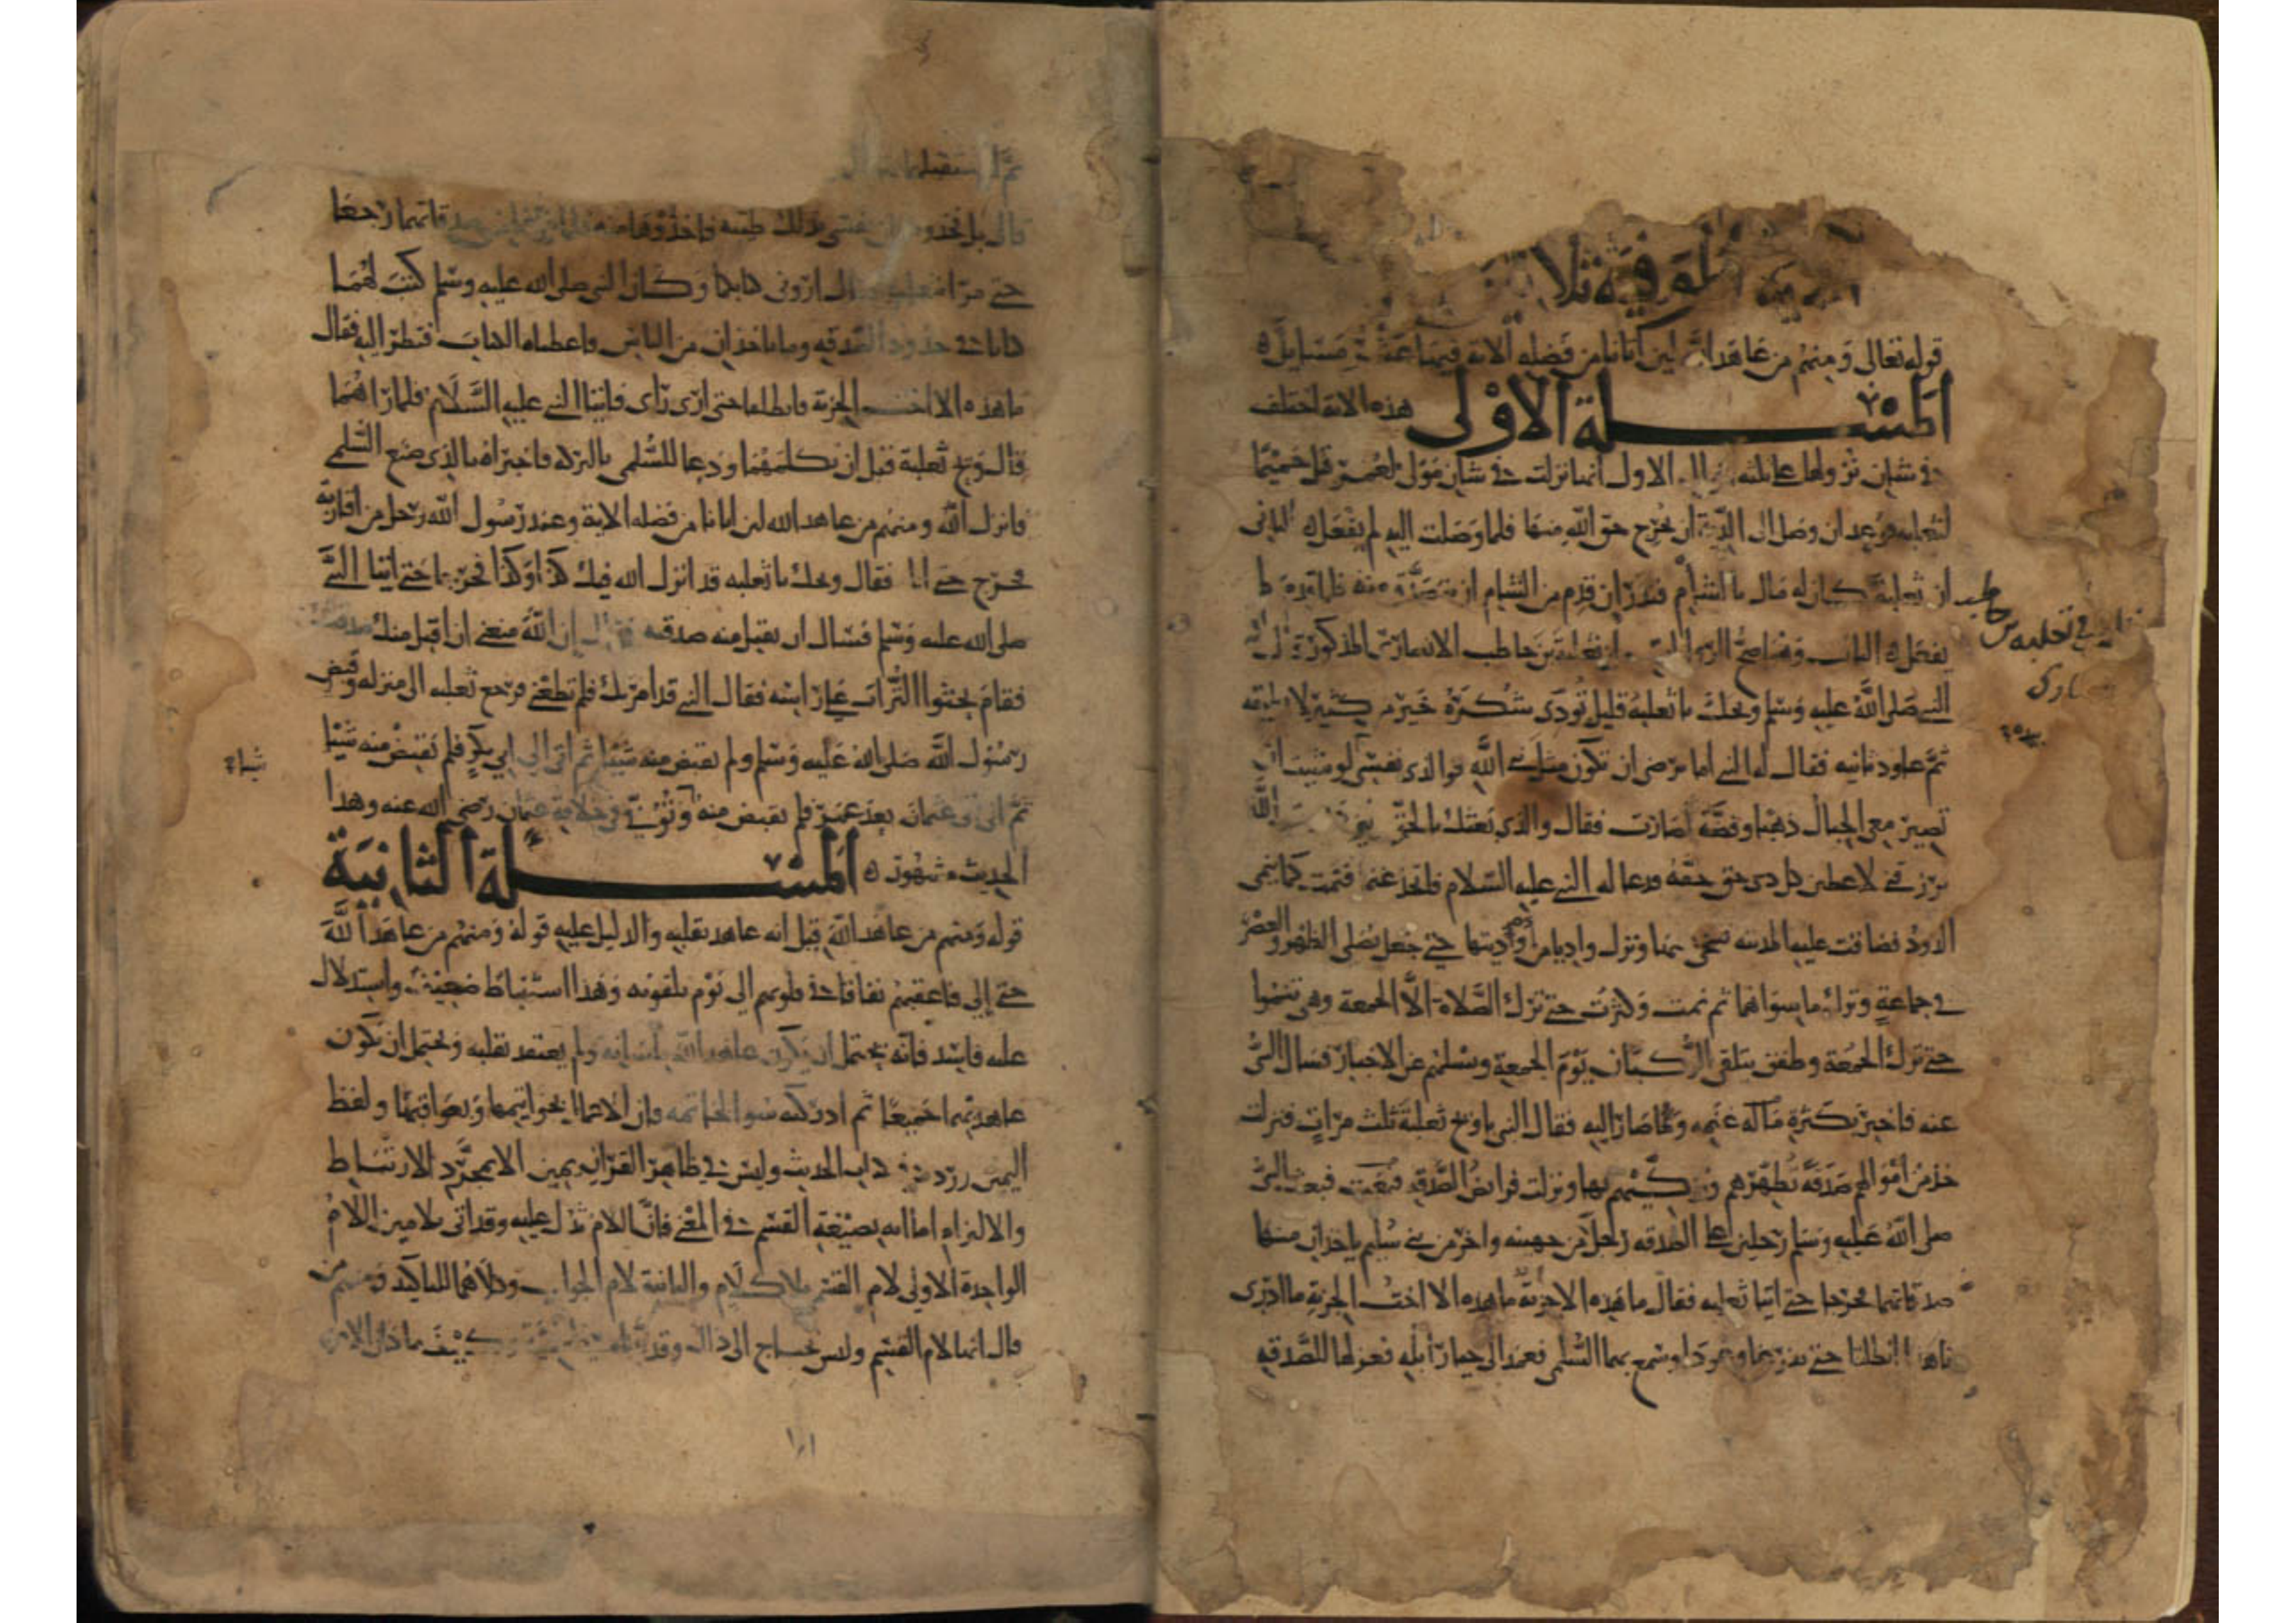 الموفية ثلا
قوله تعالى ومنهم من عاهد الله لين آتانا من فضله الآية فيها مسايل
المسئلة الأولى هذه الآية اختلف
في شان نزولها على ثلثة الاول انها نزلت في شان مولى لعمر قتل حميما
لثعلبة فوعد ان وصل الى الدية ان يخرج حق الله منها فلما وصلت اليه لم يفعل الثاني
ان ثعلبة كان له مال بالشام فنذر ان قدم من الشام ان يتصدق منه فلما قدم لم
يفعل الثالث وهو اصح الروايات ان ثعلبة بن حاطب الانصاري المذكور
النبي صلى الله عليه وسلم ويحك يا ثعلبة قليل تؤدى شكره خير من كثير لا تطيقه
ثم عاود ثانيه فقال له النبي اما ترضى ان تكون مثل نبي الله فوالذي نفسي لو شيت ان
تصير معي الجبال ذهبا وفضة لصارت فقال والذي بعثك بالحق الله
يرزقني لاعطين كل ذي حق حقه فدعا له النبي عليه السلام فاتخذ غنما فنمت كما تنمى
الدود فضاقت عليه المدينة فتنحى عنها ونزل واديا من اوديتها حتى جعل يصلى الظهر والعصر
في جماعة وترك ما سواهما ثم نمت وكثرت حتى ترك الصلاة الا الجمعة وهي تنموا
حتى ترك الجمعة وطفق يتلقى الركبان يوم الجمعة ويسلهم عن الاخبار فسال النبي
عنه فاخبر بكثرة ماله غنمه وبما صار اليه فقال النبي يا ويح ثعلبة ثلث مرات فنزلت
خذ من اموالهم صدقة تطهرهم وتزكيهم بها ونزلت فرائض الصدقه فبعث النبي
صلى الله عليه وسلم رجلين على الصدقه رجلا من جهينه واخر من بني سليم ياخذان منها
صدقاتهما فخرجا حتى اتيا ثعلبه فقال ما هذه الا جزية ما هذه الا اخت الجزية ما ادرى
ما هذا انطلقا حتى تفرغا وتعودا وسمع بهما السلمي فعمد الى خيار ابله فعزلها للصدقه
ثم استقبلهما
قال بل فخذوه نفسي بذلك طيبه فاخذوها منه فلما فرغا من صدقاتهما رجعا
حتى مرا بثعلبة فقال اروني كتابكما وكان النبي صلى الله عليه وسلم كتب لهما
كتابا في حدود الصدقه وما ياخذان من الناس فاعطياه الكتاب فنظر اليه فقال
ما هذه الا اخت الجزية فانطلقا حتى ارى رأى فاتيا النبي عليه السلام فلما رآهما
قال ويح ثعلبة قبل ان يكلمهما ودعا للسلمي بالبركة فاخبراه بالذي صنع السلمي
فانزل الله ومنهم من عاهد الله لئن اتانا من فضله الاية وعند رسول الله رجل من اقاربه
فخرج حتى اتاه فقال ويحك يا ثعلبه قد انزل الله فيك كذا وكذا فخرج حتى اتيا النبي
صلى الله عليه وسلم فسال ان يقبل منه صدقته فقال ان الله منعني ان اقبل منك صدقتك
فقام يحثوا التراب على راسه فقال النبي قد امرتك فلم تطعني فرجع ثعلبه الى منزله وقبض
رسول الله صلى الله عليه وسلم ولم يقبض منه شيئا ثم اتى الى ابي بكر فلم يقبض منه شيئا
ثم اتى عثمان بعد عمر فلم يقبض منه وتوفي في خلافة عثمان رضي الله عنه وهذا
الحديث مشهور المسئلة الثانية
قوله ومنهم من عاهد الله قيل انه عاهد بقلبه والدليل عليه قوله ومنهم من عاهد الله
حتى إلى فاعقبهم نفاقا في قلوبهم الى يوم يلقونه وهذا استنباط ضعيف واستدلال
عليه فاسد فانه يحتمل ان يكون عاهد الله بلسانه ولم يعتقد بقلبه ويحتمل ان يكون
عاهد بهما جميعا ثم ادركته سوء الخاتمه فان الاعمال بخواتيمها وبعواقبها ولفظ
اليمين ورد في الحديث وليس في ظاهر القران يمين الا بمجرد الارتباط
والالتزام اما انه بصيغة القسم في المعنى فان اللام تدل عليه وقد اتى بلامين اللام
الواحدة الاولى لام القسم بلا كلام والثانية لام الجواب وكلاهما للتاكيد ومنهم من
قال انها لام القسم وليس نحتاج الى ذلك وقد